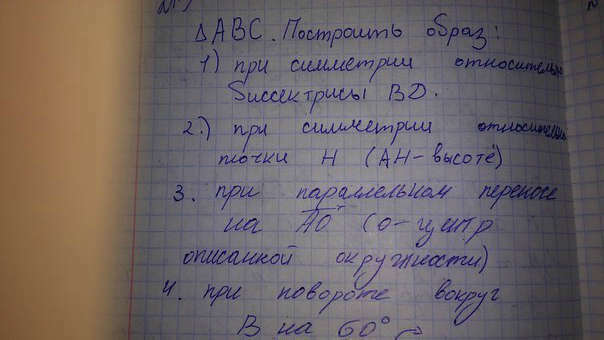 △ABC. Построить образ:
1) при симметрии относительно
биссектрисы BD.
2.) при симметрии относительно
точки H (AH - высоте)
3. при параллельном переносе
на AO (O - центр
описанной окружности)
4. при повороте вокруг
B на 60°